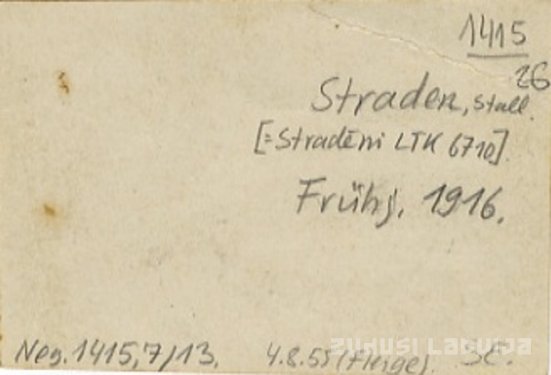 1415
26
Straden, Stall.
[=Stradēni LTK 6710].
Frühj. 1916.
Neg. 1415,7/13. 4.8.55 (Flügel). SE.
ZUDUSI LATVIJA